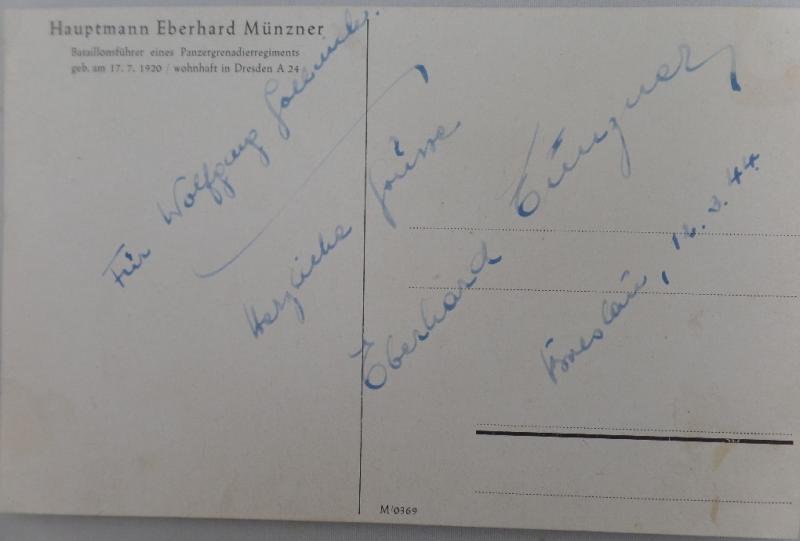 Hauptmann Eberhard Münzner
Bataillonsführer eines Panzergrenadierregiments
geb. am 17. 7. 1920 / wohnhaft in Dresden A 24
Für Wolfgang
Herzliche Grüsse
Eberhard Münzner
Breslau, 12. 2. 44.
M/0369